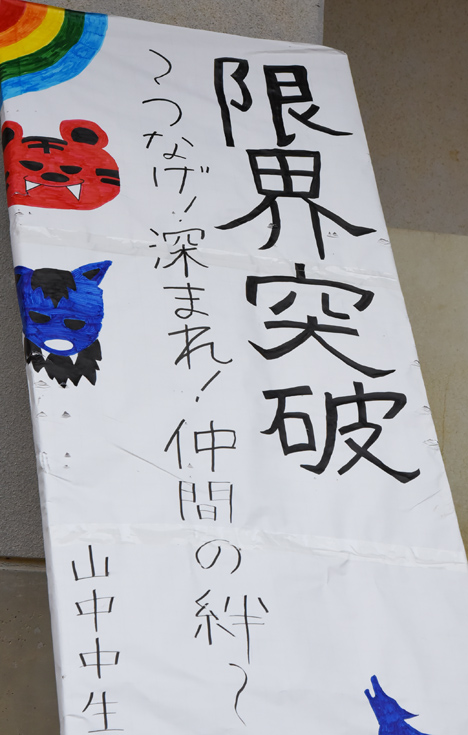 限界突破
～つなげ！深まれ！仲間の絆～
山中中生